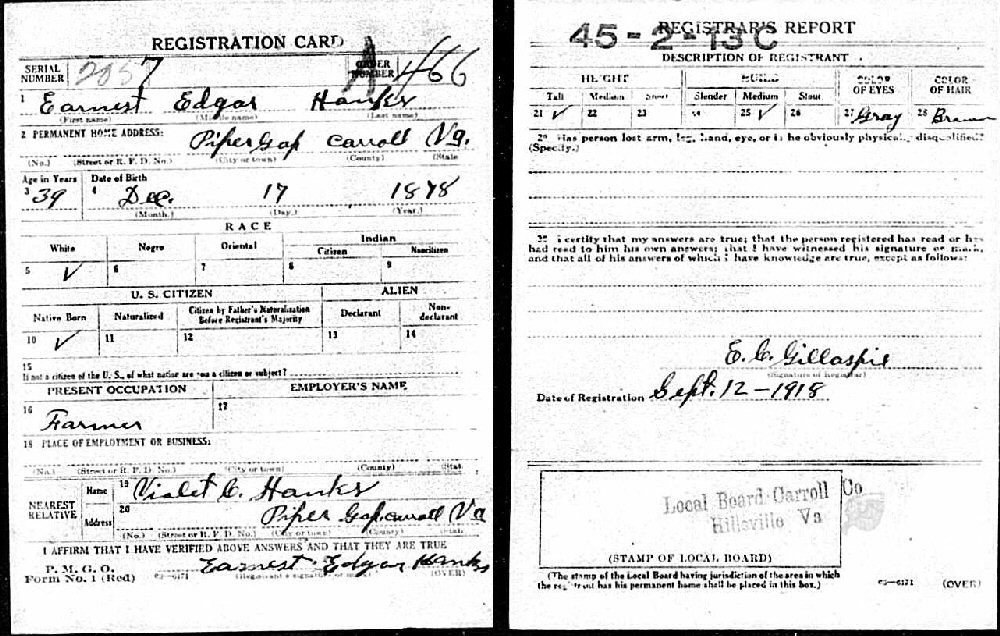 REGISTRATION CARD
SERIAL NUMBER 2057 ORDER NUMBER A 466
1 Earnest Edgar Hanks
(First name) (Middle name) (Last name)
2 PERMANENT HOME ADDRESS:
Piper Gap Carroll Va.
(No.) (Street or R. F. D. No.) (City or town) (County) (State
Age in Years Date of Birth
3 39 4 Dec. 17 1878
(Month.) (Day.) (Year.)
RACE
White Negro Oriental Indian
Citizen Noncitizen
5 ✓ 6 7 8 9
U. S. CITIZEN ALIEN
Native Born Naturalized Citizen by Father's Naturalization Before Registrant's Majority Declarant Non-declarant
10 ✓ 11 12 13 14
15
If not a citizen of the U. S., of what nation are you a citizen or subject?
PRESENT OCCUPATION EMPLOYER'S NAME
16 Farmer 17
18 PLACE OF EMPLOYMENT OR BUSINESS:
(No.) (Street or R. F. D. No.) (City or town) (County) (State
NEAREST RELATIVE Name 19 Vialet C. Hanks
Address 20 Piper Gap Carroll Va
(No.) (Street or R. F. D. No.) (City or town) (County) (State
I AFFIRM THAT I HAVE VERIFIED ABOVE ANSWERS AND THAT THEY ARE TRUE
P. M. G. O.
Form No. 1 (Red) 03-6171 Earnest Edgar Hanks
(Registrant's signature or mark) (OVER)
45-2-13 C
REGISTRAR'S REPORT
DESCRIPTION OF REGISTRANT
HEIGHT BUILD COLOR OF EYES COLOR OF HAIR
Tall Medium Short Slender Medium Stout
21 ✓ 22 23 24 25 ✓ 26 27 Gray 28 Brown
29 Has person lost arm, leg, hand, eye, or is he obviously physically disqualified?
(Specify.)
30 I certify that my answers are true; that the person registered has read or has
had read to him his own answers; that I have witnessed his signature or mark,
and that all of his answers of which I have knowledge are true, except as follows:
E. C. Gillaspie
(Signature of Registrar)
Date of Registration Sept. 12 - 1918
Local Board Carroll Co
Hillsville Va
(STAMP OF LOCAL BOARD)
(The stamp of the Local Board having jurisdiction of the area in which
the registrant has his permanent home shall be placed in this box.)
03-6171 (OVER)